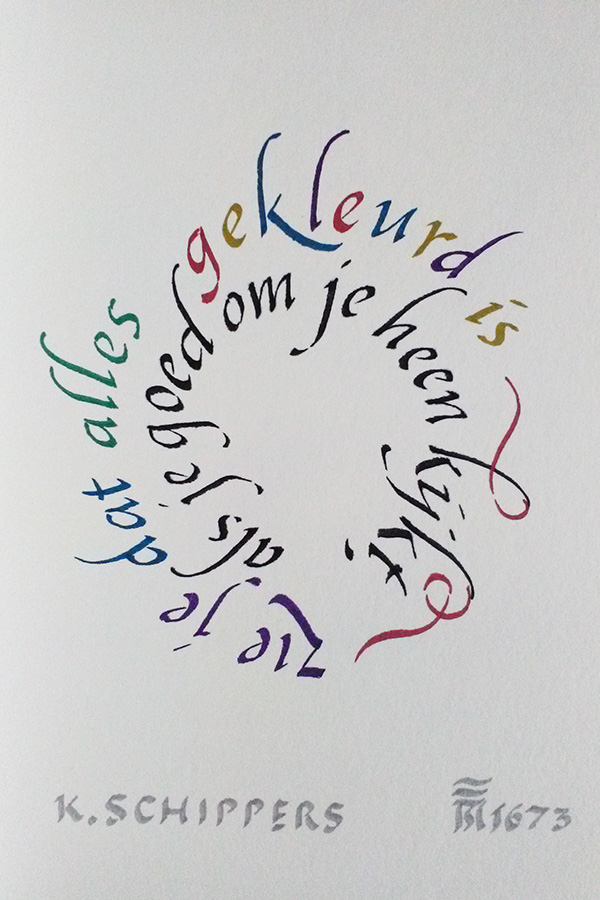 als je goed om je heen kijkt
zie je dat alles gekleurd is
K. SCHIPPERS
1673